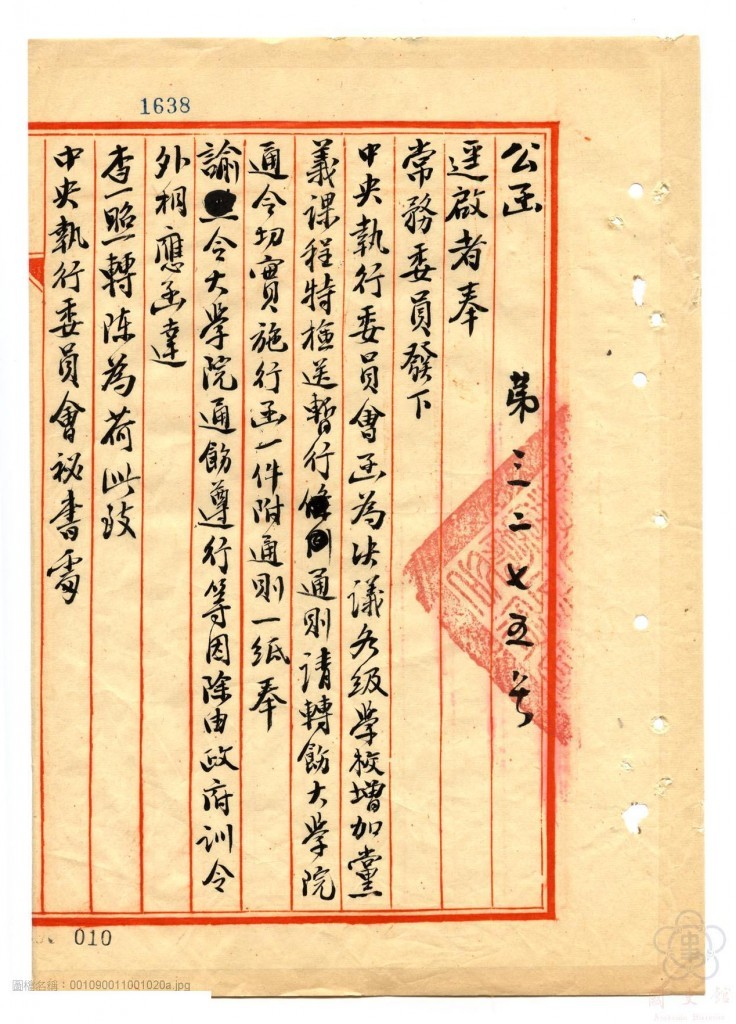 1638
公函 第三二七五號
逕啟者奉
常務委員發下
中央執行委員會函為決議各級学校增加黨
義課程特檢送暫行通則請轉飭大学院
通令切實施行函一件附通則一紙奉
諭令大学院通飭遵行等因除由政府訓令
外相應函達
查照轉陳為荷此致
中央執行委員會秘書處
010
圖檔名稱：001090011001020a.jpg
國史館